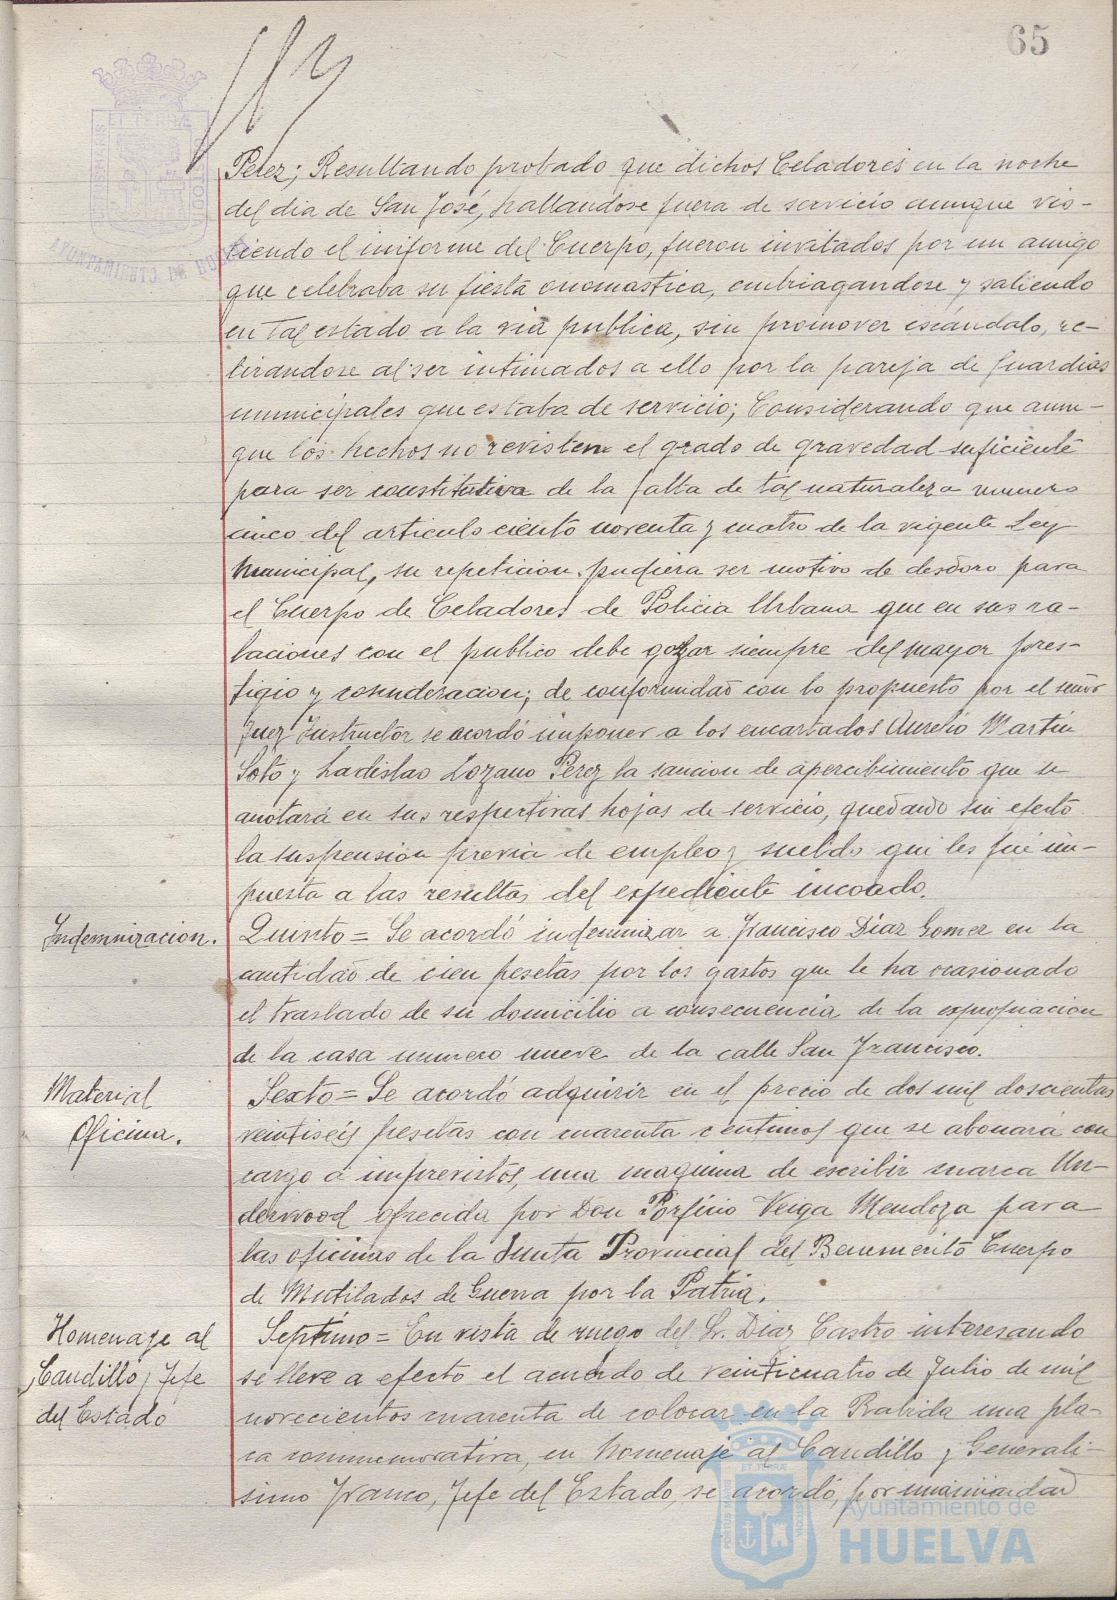 65
Perez; Resultando probado que dichos Celadores en la noche
del dia de San José, hallandose fuera de servicio aunque vis-
tiendo el uniforme del Cuerpo, fueron invitados por un amigo
que celebraba su fiesta onomastica, embriagandose y saliendo
en tal estado a la via publica, sin promover escándalo, re-
tirandose al ser intimados a ello por la pareja de guardias
municipales que estaba de servicio; Considerando que aun-
que los hechos no revisten el grado de gravedad suficiente
para ser constitutiva de la falta de tal naturaleza numero
cinco del articulo ciento noventa y cuatro de la vigente Ley
Municipal, su repeticion pudiera ser motivo de desdoro para
el Cuerpo de Celadores de Policia Urbana que en sus re-
laciones con el publico debe gozar siempre del mayor pres-
tigio y consideracion; de conformidad con lo propuesto por el señor
Juez Instructor se acordó imponer a los encartados Aurelio Martin
Soto y Ladislao Lozano Perez la sancion de apercibimiento que se
anotará en sus respectivas hojas de servicio, quedando sin efecto
la suspension previa de empleo y sueldo que les fué im-
puesta a las resultas del expediente incoado.
Indemnizacion.
Quinto = Se acordó indemnizar a Francisco Díaz Gomez en la
cantidad de cien pesetas por los gastos que le ha ocasionado
el traslado de su domicilio a consecuencia de la expropiacion
de la casa numero nueve de la calle San Francisco.
Material
Oficina.
Sexto = Se acordó adquirir en el precio de dos mil doscientas
veintiseis pesetas con cuarenta centimos que se abonará con
cargo a imprevistos, una maquina de escribir marca Un-
derwood ofrecida por Don Porfirio Veiga Mendoza para
las oficinas de la Junta Provincial del Benemerito Cuerpo
de Mutilados de Guerra por la Patria.
Homenaje al
Caudillo y Jefe
del Estado
Septimo = En vista de ruego del Sr. Diaz Castro interesando
se lleve a efecto el acuerdo de veinticuatro de Julio de mil
novecientos cuarenta de colocar en la Rabida una pla-
ca conmemorativa, en homenaje al Caudillo y Generali-
simo Franco, Jefe del Estado, se acordó, por unanimidad
AYUNTAMIENTO DE HUELVA
ET TERRÆ
PORTUS MARIS
ET TERRÆ
CUSTODIA
Ayuntamiento de
HUELVA